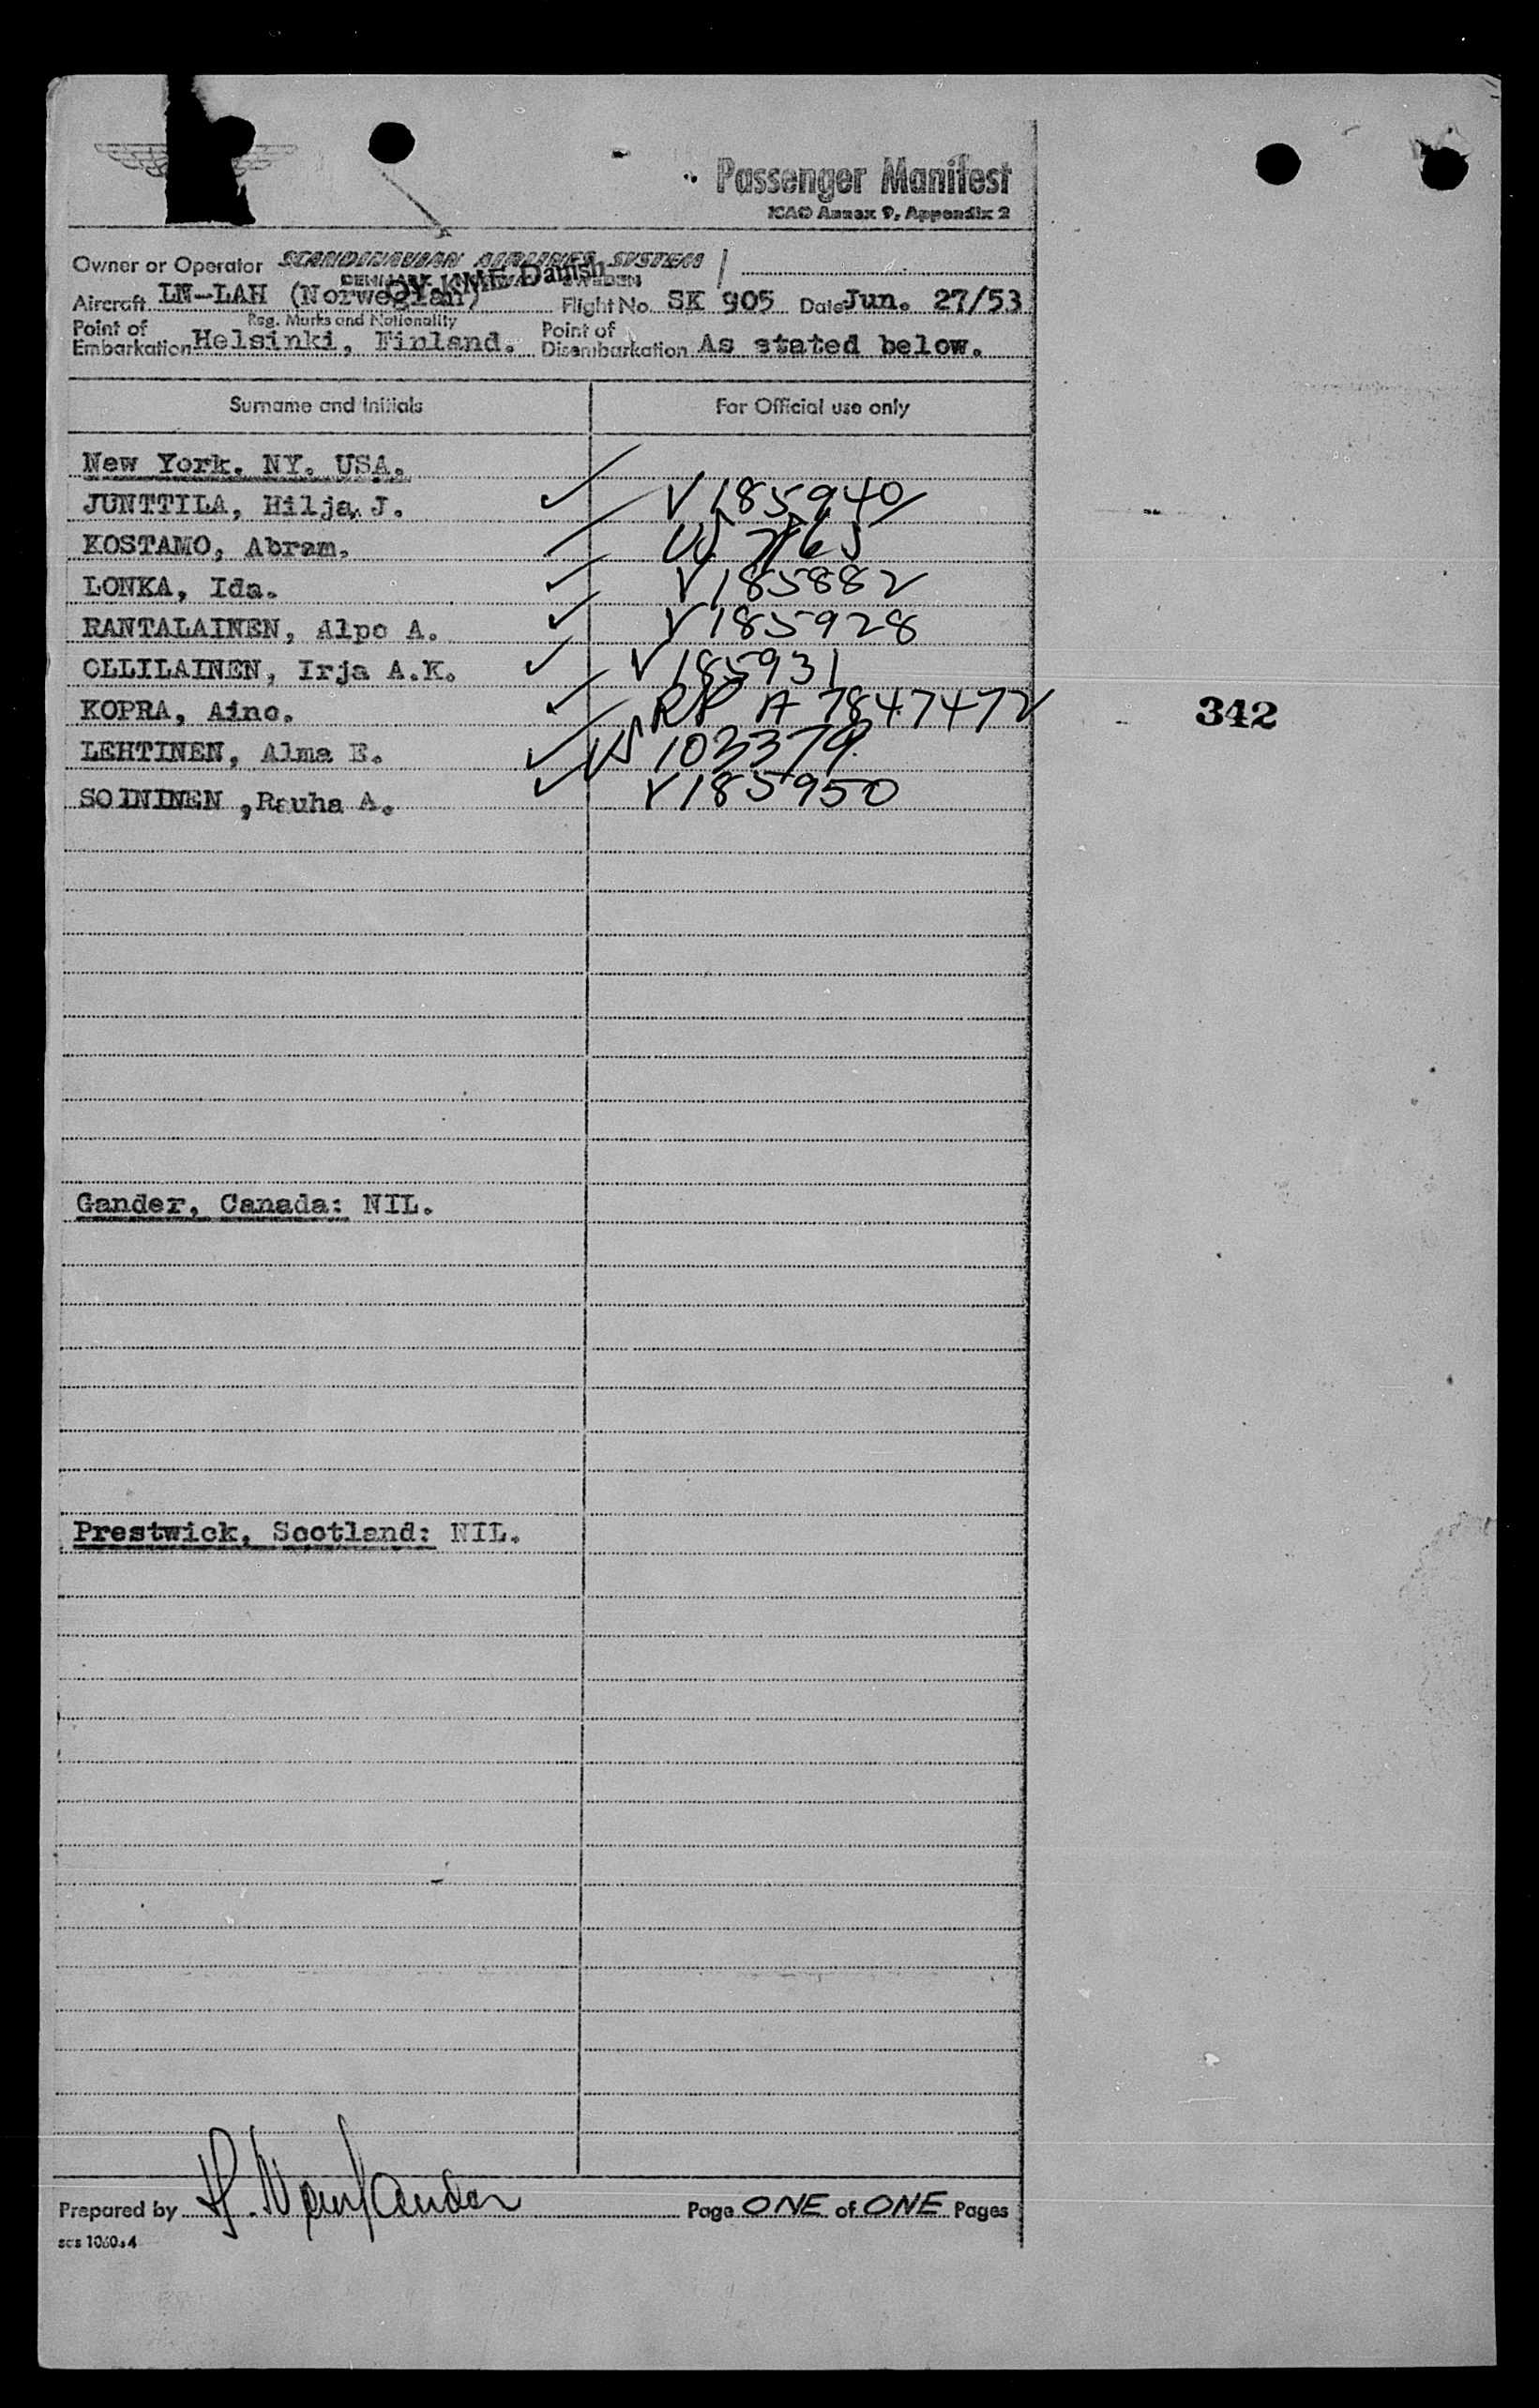 Passenger Manifest
ICAO Annex 9, Appendix 2
Owner or Operator SCANDINAVIAN AIRLINES SYSTEM
DENMARK SWEDEN
OY-KME Danish
Aircraft LN-LAH (Norwegian) Flight No. SK 905 Date Jun. 27/53
Reg. Marks and Nationality
Point of Embarkation Helsinki, Finland. Point of Disembarkation As stated below.
Surname and Initials For Official use only
New York. NY. USA.
JUNTTILA, Hilja J. V 185940
KOSTAMO, Abram. US
LONKA, Ida. V 185882
RANTALAINEN, Alpo A. V 185928
OLLILAINEN, Irja A.K. V 185931
KOPRA, Aino. RP A 7847472
342
LEHTINEN, Alma E. US 103379
SOININEN ,Rauha A. V 185950
Gander, Canada: NIL.
Prestwick, Scotland: NIL.
Prepared by Page ONE of ONE Pages
scs 1060.4